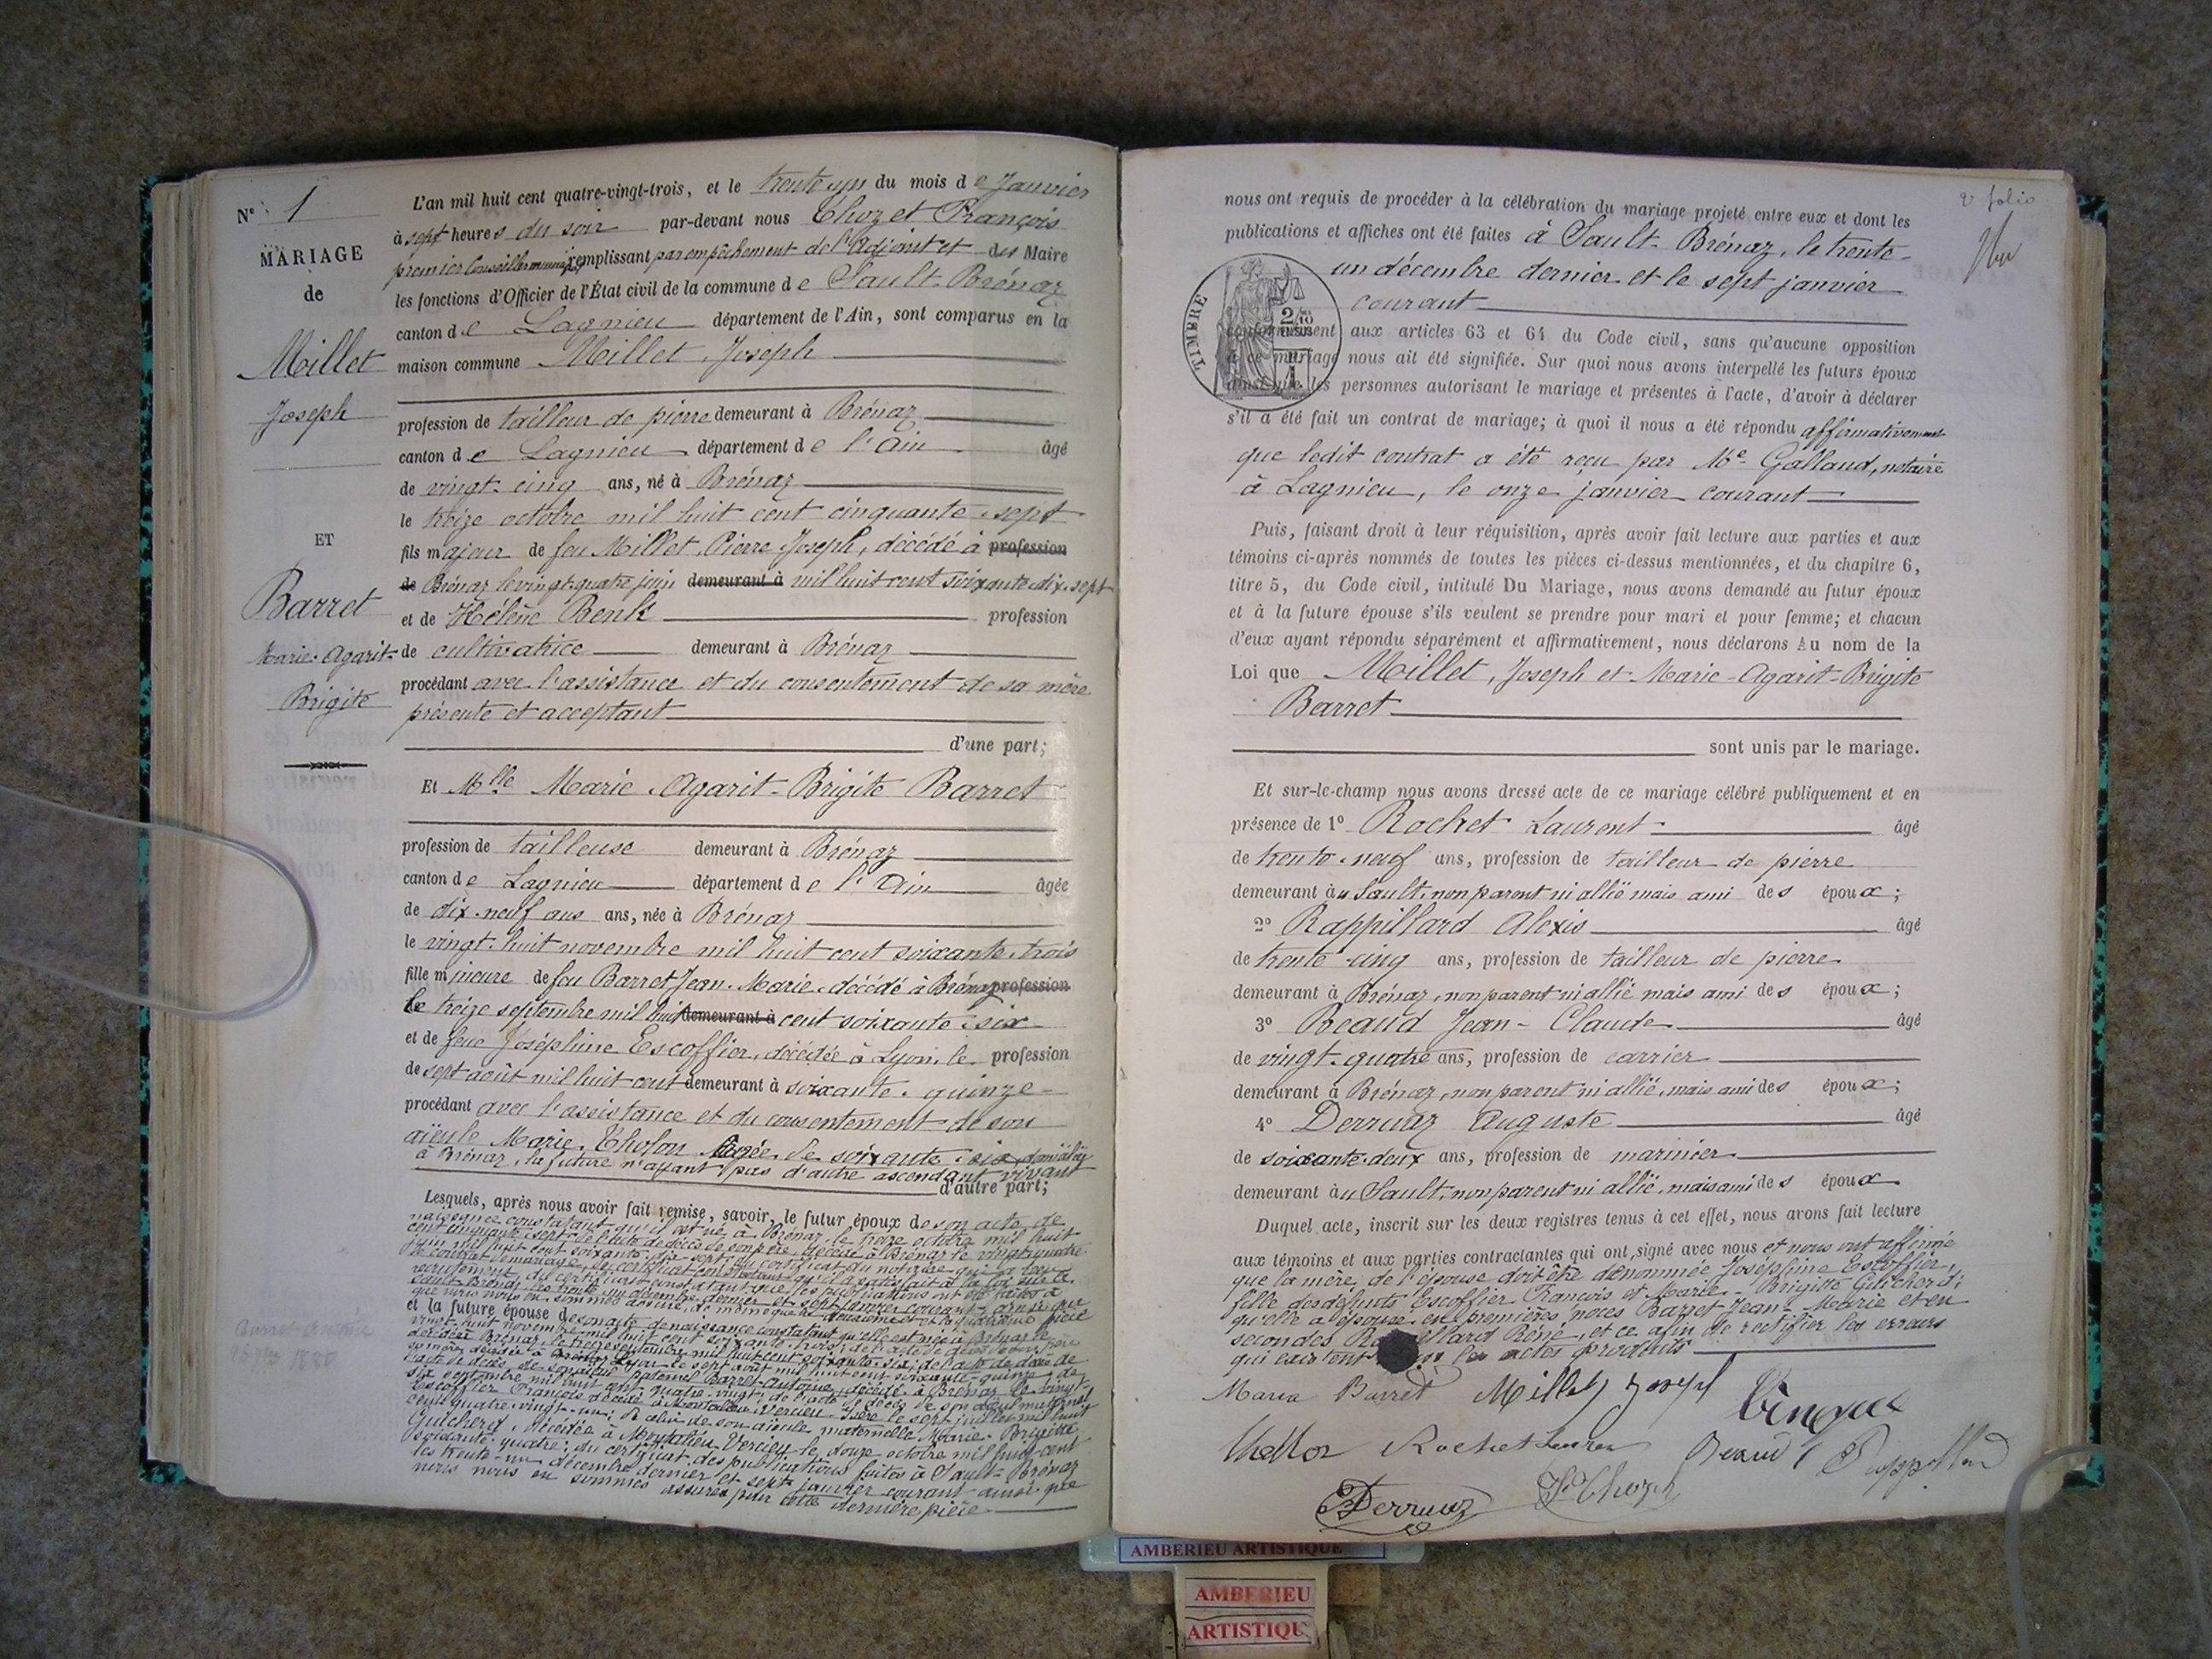 N° 1
MARIAGE
de
Millet
Joseph
ET
Barret
Marie-Agarit-
Brigite
L'an mil huit cent quatre-vingt-trois, et le trente un du mois de Janvier
à sept heures du soir par-devant nous Thozet François
premier Conseiller municipal remplissant par empêchement de l'Adjoint et des Maire
les fonctions d'Officier de l'État civil de la commune de Sault-Brénaz
canton de Lagnieu département de l'Ain, sont comparus en la
maison commune Millet, Joseph
profession de tailleur de pierre demeurant à Brénaz
canton de Lagnieu département de l'Ain âgé
de vingt-cinq ans, né à Brénaz
le treize octobre mil huit cent cinquante-sept
fils majeur de feu Millet, Pierre Joseph, décédé à profession
de Brénaz le vingt-quatre juin demeurant à mil huit cent soixante-dix-sept
et de Hélène Benk profession
de cultivatrice demeurant à Brénaz
procédant avec l'assistance et du consentement de sa mère
présente et acceptant
d'une part;
Et Mlle Marie-Agarit-Brigite Barret
profession de tailleuse demeurant à Brénaz
canton de Lagnieu département de l'Ain âgée
de dix-neuf ans ans, née à Brénaz
le vingt-huit novembre mil huit cent soixante-trois
fille mineure de feu Barret Jean-Marie, décédé à Brénaz profession
le treize septembre mil huit demeurant à cent soixante-six
et de feue Joséphine Escoffier, décédée à Lyon, le profession
de sept août mil huit cent demeurant à soixante-quinze
procédant avec l'assistance et du consentement de son
aïeule Marie Tholon âgée de soixante-six, domiciliée
à Brénaz, la future n'ayant pas d'autre ascendant vivant
d'autre part;
Lesquels, après nous avoir fait remise, savoir, le futur époux de son acte de
naissance constatant qu'il est né à Brénaz, le treize octobre mil huit
cent cinquante-sept de l'acte de décès de son père, décédé à Brénaz le vingt-quatre
juin mil huit cent soixante-dix-sept du certificat du notaire qui a reçu
le contrat de mariage, du certificat constatant qu'il a satisfait à la loi sur le
recrutement, du certificat constatant que les publications ont été faites à
Sault-Brénaz les trente-un décembre dernier et sept janvier courant ainsi que
que nous nous en sommes assuré, de même que la deuxième et la quatrième pièce
et la future épouse de son acte de naissance constatant qu'elle est née à Brénaz le
vingt-huit novembre mil huit cent soixante-trois, de l'acte de décès de son père
décédé à Brénaz, le treize septembre mil huit cent soixante-six; de l'acte de décès de
sa mère, décédée à Lyon le sept août mil huit cent soixante-quinze de
l'acte de décès de son aïeul paternel Barret Antoine, décédé à Brénaz le vingt-
six septembre mil huit cent quatre-vingt; de l'acte de décès de son aïeul maternel
Escoffier François décédé à Montalieu Vercieu Isère le sept juillet mil huit
cent quatre-vingt-un; de celui de son aïeule maternelle Marie-Brigitte
Guicherd, décédée à Montalieu-Vercieu le douze octobre mil huit cent
soixante-quatre; du certificat des publications faites à Sault-Brénaz
les trente-un décembre dernier et sept janvier courant ainsi que
nous nous en sommes assuré par cette dernière pièce
2e folio
nous ont requis de procéder à la célébration du mariage projeté entre eux et dont les
publications et affiches ont été faites à Sault-Brénaz, le trente-
un décembre dernier et le sept janvier
courant
TIMBRE
conformément aux articles 63 et 64 du Code civil, sans qu'aucune opposition
à ce mariage nous ait été signifiée. Sur quoi nous avons interpellé les futurs époux
ainsi que les personnes autorisant le mariage et présentes à l'acte, d'avoir à déclarer
s'il a été fait un contrat de mariage; à quoi il nous a été répondu affirmativement
que ledit contrat a été reçu par Me Galland, notaire
à Lagnieu, le onze janvier courant
Puis, faisant droit à leur réquisition, après avoir fait lecture aux parties et aux
témoins ci-après nommés de toutes les pièces ci-dessus mentionnées, et du chapitre 6,
titre 5, du Code civil, intitulé Du Mariage, nous avons demandé au futur époux
et à la future épouse s'ils veulent se prendre pour mari et pour femme; et chacun
d'eux ayant répondu séparément et affirmativement, nous déclarons Au nom de la
Loi que Millet, Joseph et Marie-Agarit-Brigite
Barret
sont unis par le mariage.
Et sur-le-champ nous avons dressé acte de ce mariage célébré publiquement et en
présence de 1° Rochet Laurent âgé
de trente-neuf ans, profession de tailleur de pierre
demeurant au Sault, non parent ni allié mais ami des époux;
2° Rappillard Alexis âgé
de trente-cinq ans, profession de tailleur de pierre
demeurant à Brénaz, non parent ni allié mais ami des époux;
3° Reaud Jean-Claude âgé
de vingt-quatre ans, profession de carrier
demeurant à Brénaz, non parent ni allié, mais ami des époux;
4° Derruaz Auguste âgé
de soixante-deux ans, profession de marinier
demeurant au Sault, non parent ni allié, mais ami des époux
Duquel acte, inscrit sur les deux registres tenus à cet effet, nous avons fait lecture
aux témoins et aux parties contractantes qui ont signé avec nous et nous ont affirmé
que la mère de l'épouse doit être dénommée Joséphine Escoffier,
fille des défunts Escoffier François et Marie-Brigitte Guicherd;
qu'elle a épousé en premières noces Barret Jean-Marie et en
secondes R llard Réné, et ce afin de rectifier les erreurs
qui existent les actes produits
Maria Barret Millet Joseph
Rochet Reaud Rappillard
Derruaz F. Thozet
AMBERIEU ARTISTIQUE
AMBERIEU
ARTISTIQU